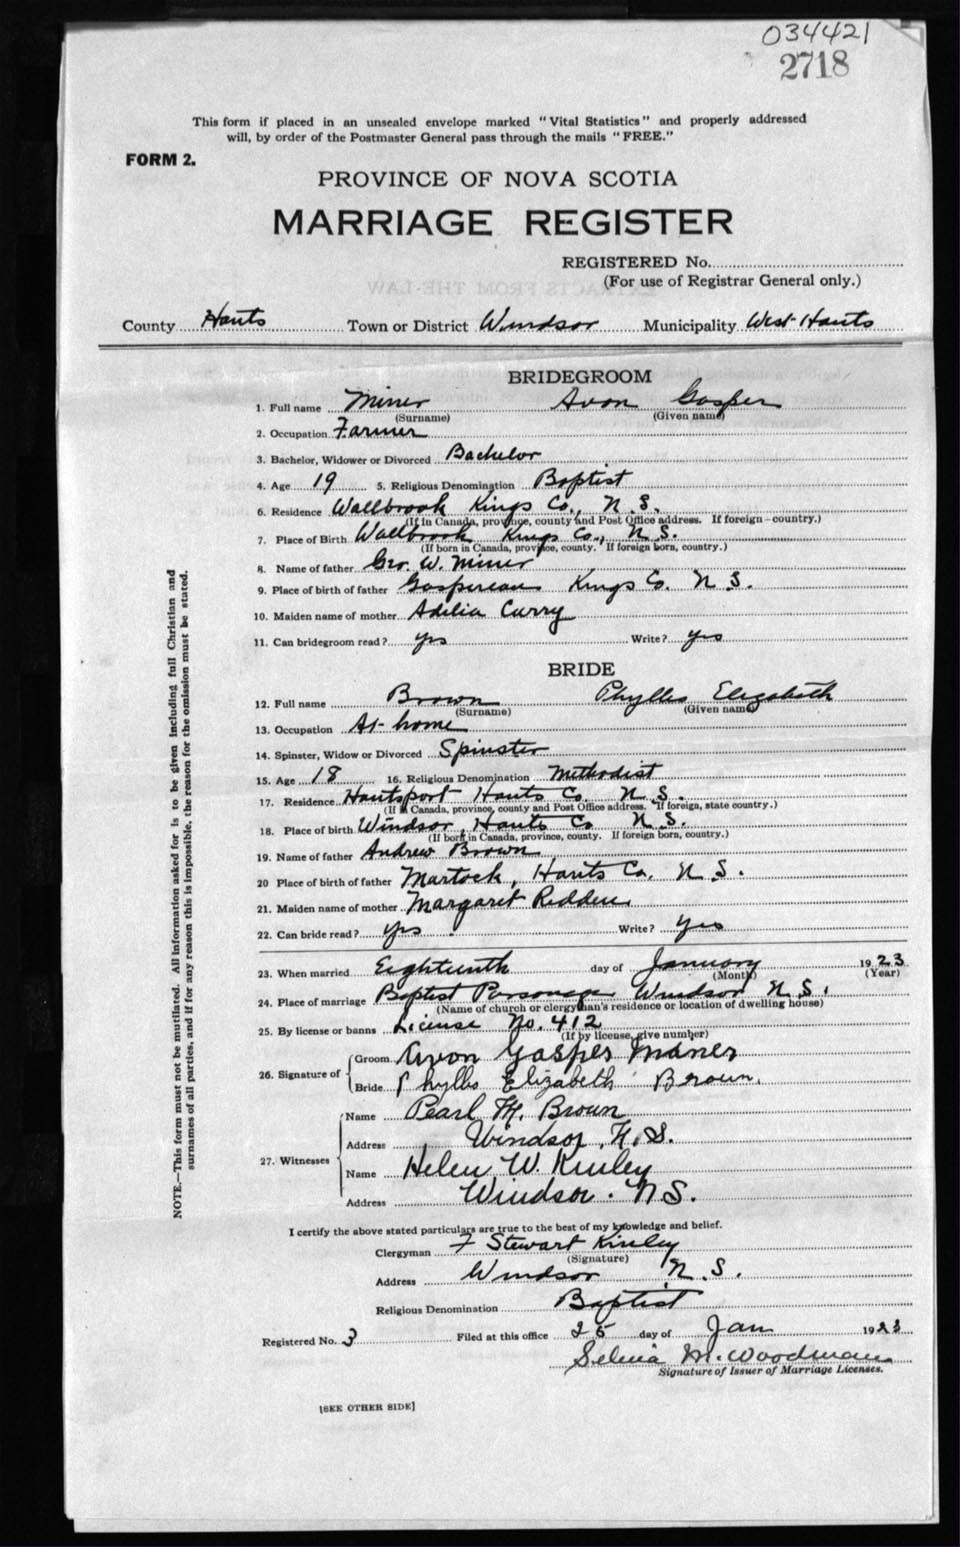 034421
2718
This form if placed in an unsealed envelope marked "Vital Statistics" and properly addressed
will, by order of the Postmaster General pass through the mails "FREE."
FORM 2.
PROVINCE OF NOVA SCOTIA
MARRIAGE REGISTER
REGISTERED No.
(For use of Registrar General only.)
County Hants Town or District Windsor Municipality West Hants
BRIDEGROOM
1. Full name Miner Avon Gasper
(Surname) (Given name)
2. Occupation Farmer
3. Bachelor, Widower or Divorced Bachelor
4. Age 19 5. Religious Denomination Baptist
6. Residence Wallbrook Kings Co., N.S.
(If in Canada, province, county and Post Office address. If foreign—country.)
7. Place of Birth Wallbrook Kings Co., N.S.
(If born in Canada, province, county. If foreign born, country.)
8. Name of father Geo. W. Miner
9. Place of birth of father Gaspereau Kings Co. N.S.
10. Maiden name of mother Adelia Curry
11. Can bridegroom read? yes Write? yes
BRIDE
12. Full name Brown Phyllis Elizabeth
(Surname) (Given name)
13. Occupation At home
14. Spinster, Widow or Divorced Spinster
15. Age 18 16. Religious Denomination Methodist
17. Residence Hantsport Hants Co. N.S.
(If in Canada, province, county and Post Office address. If foreign, state country.)
18. Place of birth Windsor, Hants Co N.S.
(If born in Canada, province, county. If foreign born, country.)
19. Name of father Andrew Brown
20 Place of birth of father Martock, Hants Co. N.S.
21. Maiden name of mother Margaret Redden
22. Can bride read? yes Write? yes
23. When married Eighteenth day of January 1923
(Month) (Year)
24. Place of marriage Baptist Parsonage Windsor N.S.
(Name of church or clergyman's residence or location of dwelling house)
25. By license or banns License No. 412
(If by license, give number)
26. Signature of
Groom Avon Gasper Miner
Bride Phyllis Elizabeth Brown.
27. Witnesses
Name Pearl M. Brown
Address Windsor, N.S.
Name Helen W. Kinley
Address Windsor. N.S.
I certify the above stated particulars are true to the best of my knowledge and belief.
Clergyman F Stewart Kinley
(Signature)
Address Windsor N.S.
Religious Denomination Baptist
Registered No. 3 Filed at this office 25 day of Jan 1923
Selina M. Woodman
Signature of Issuer of Marriage Licenses.
[SEE OTHER SIDE]
NOTE.—This form must not be mutilated. All information asked for is to be given including full Christian and
surnames of all parties, and if for any reason this is impossible, the reason for the omission must be stated.